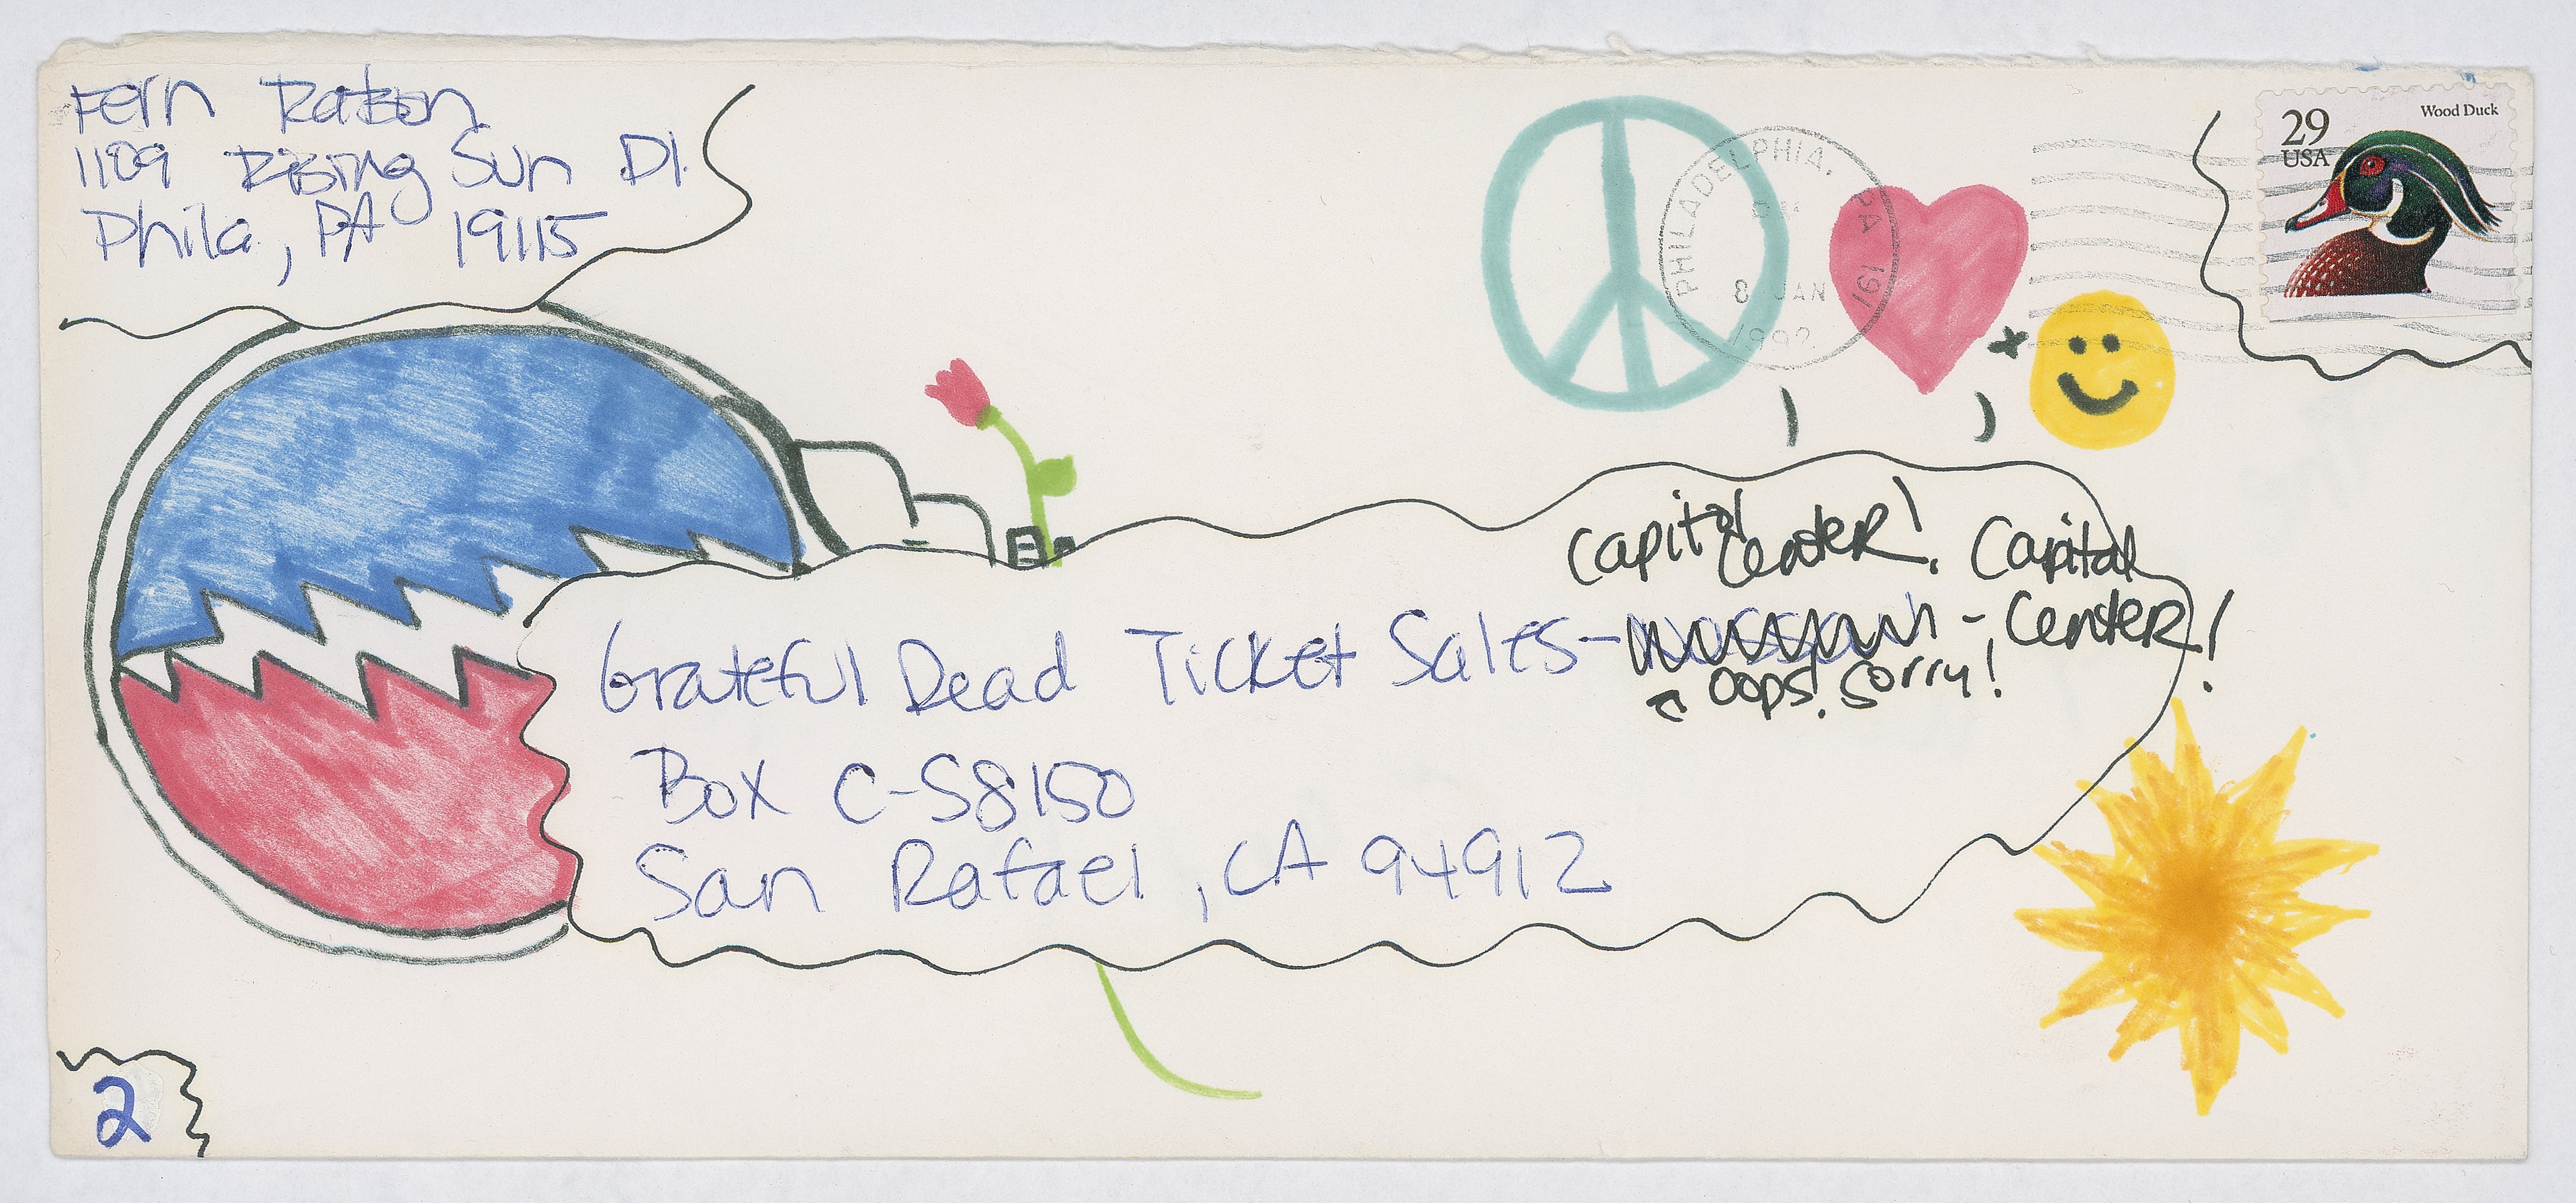 Fern
1109 Rising Sun Pl.
Phila, PA 19115
PHILADELPHIA, PA 191
PM
8 JAN
1992
29
USA
Wood Duck
Capitol Center! Capital
Grateful Dead Ticket Sales- - Center!
oops! sorry!
Box C-S8150
San Rafael, CA 94912
2